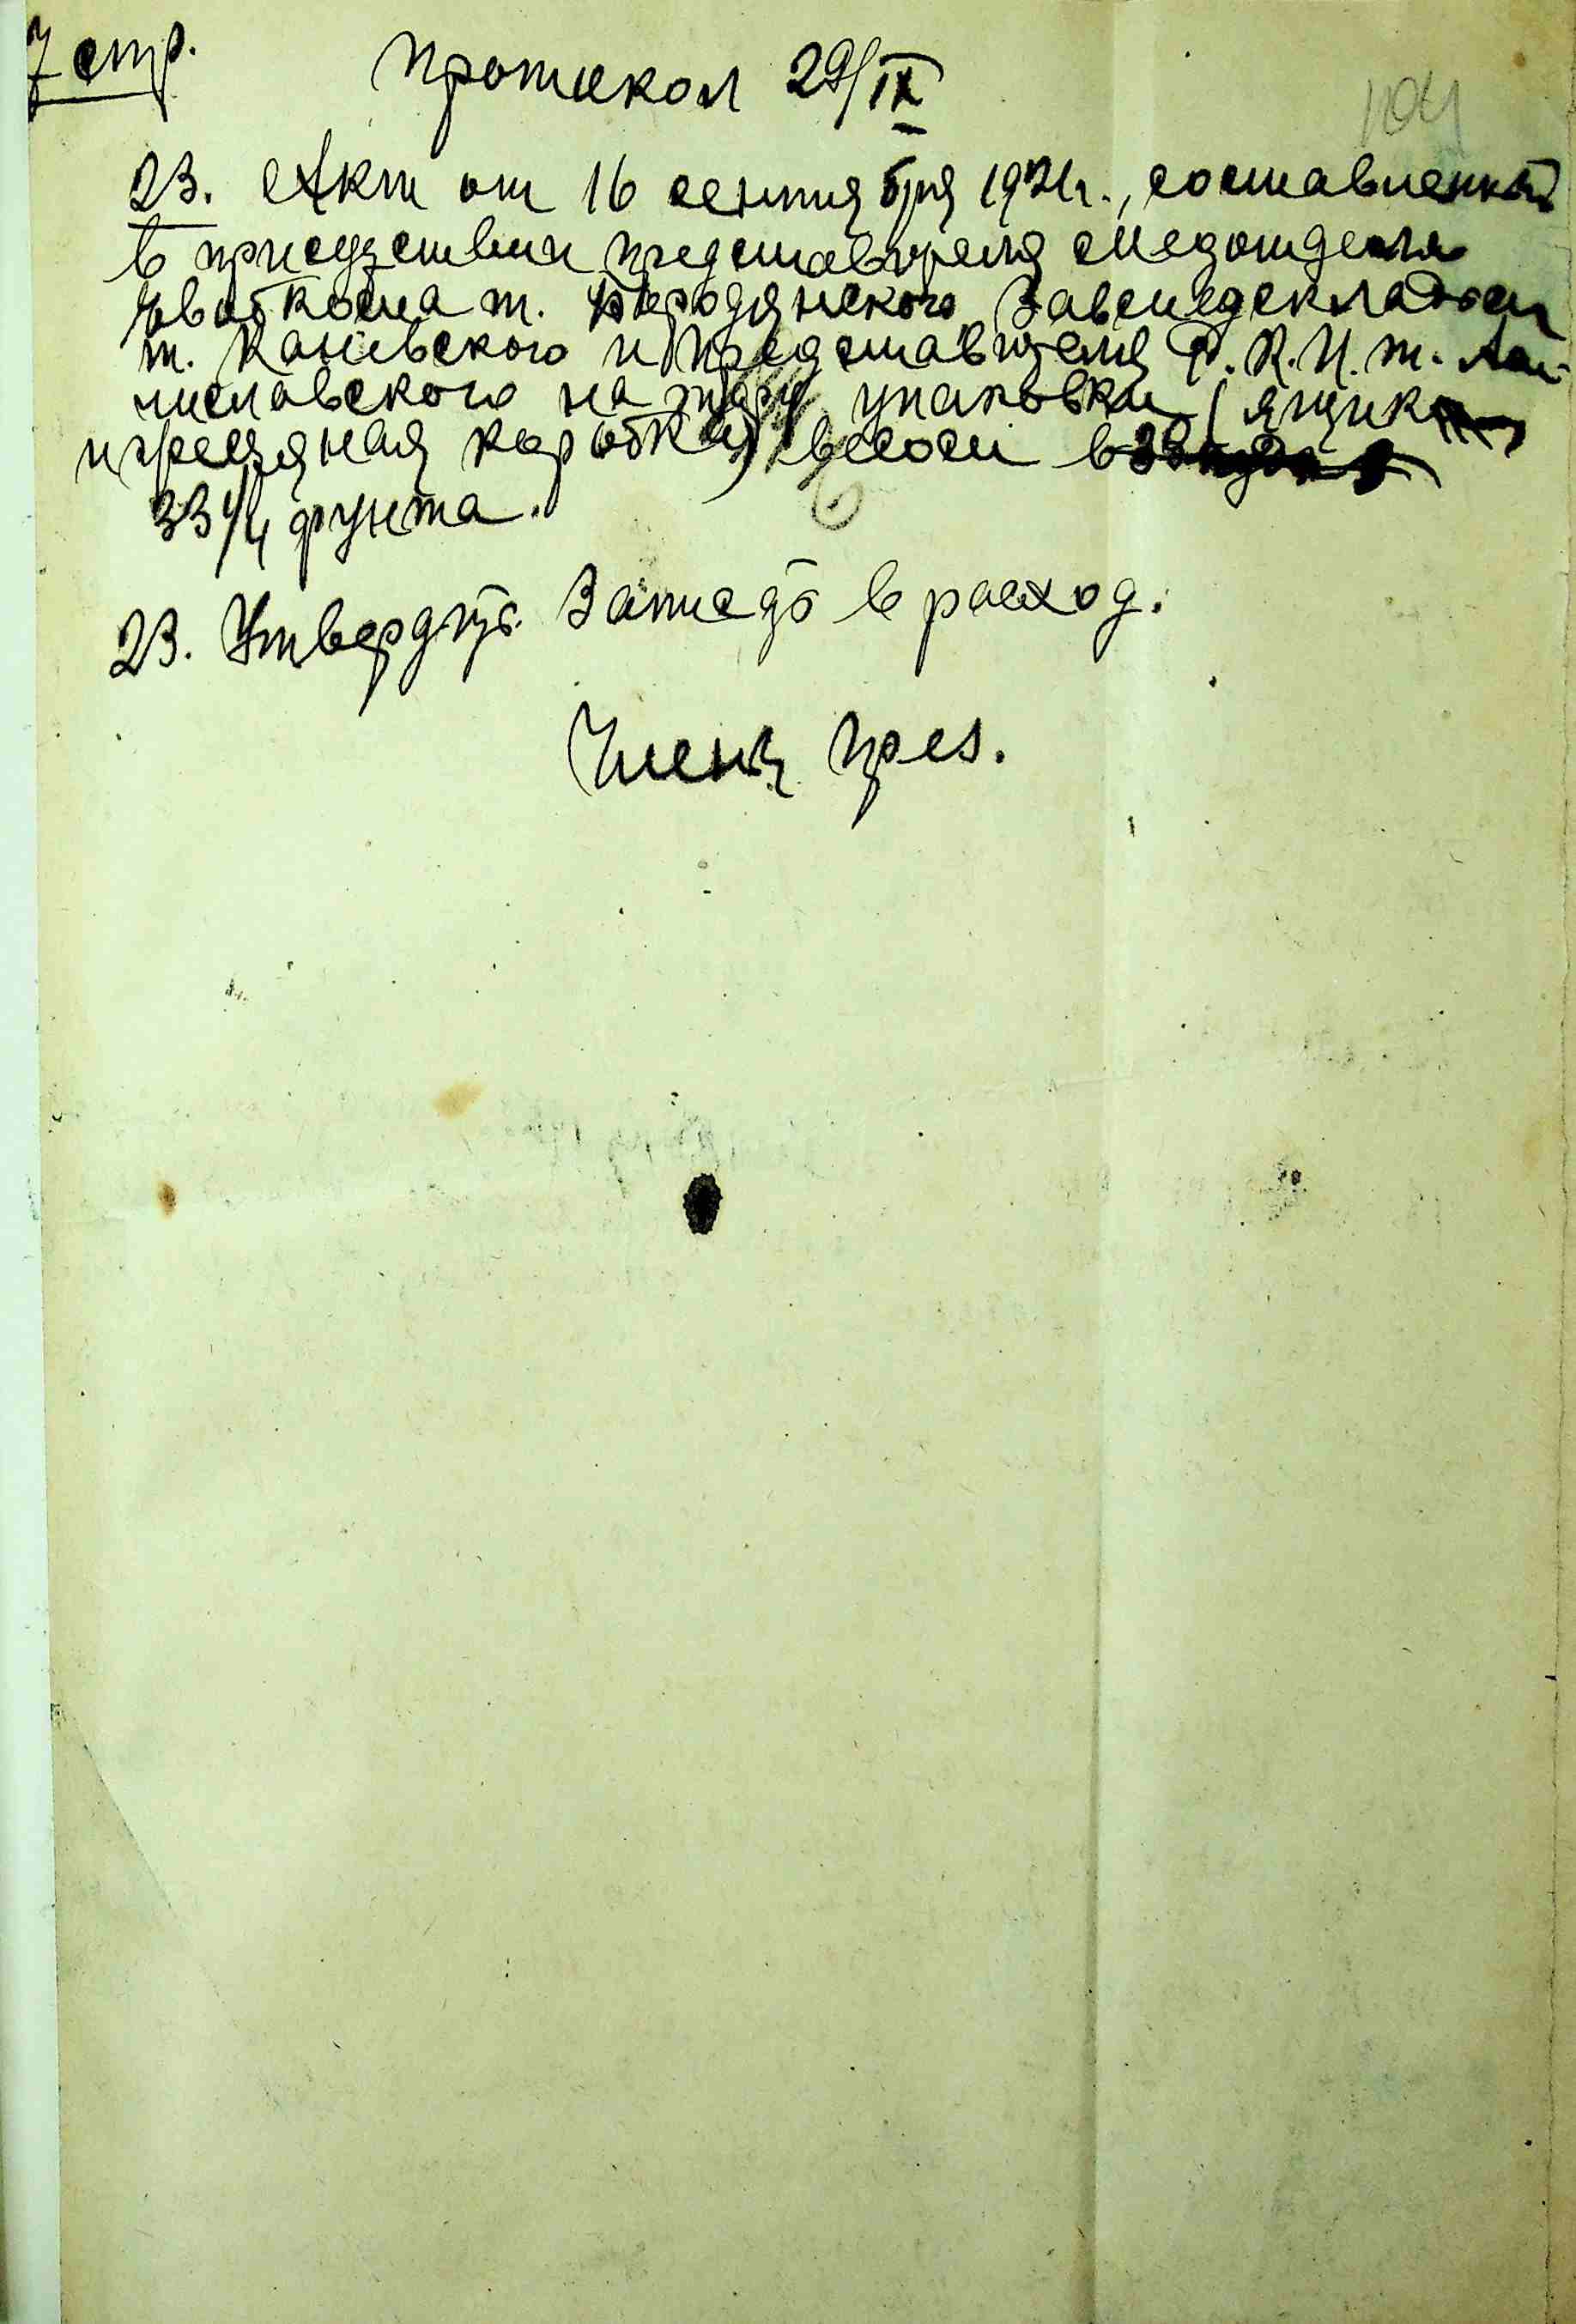 7 стр.
Протокол 29/IX
104
23. Акт от 16 сентября 1921г., составленный
в присутствии представителя Медотдела
т. Бородянского Завмедскладом
т. Каневского и представителя Р.К.И. т.
на тару упаковки (ящик
и жестяная коробка) весом в
33 1/4 фунта.
23. Утвердить. Записать в расход.
Члены През.